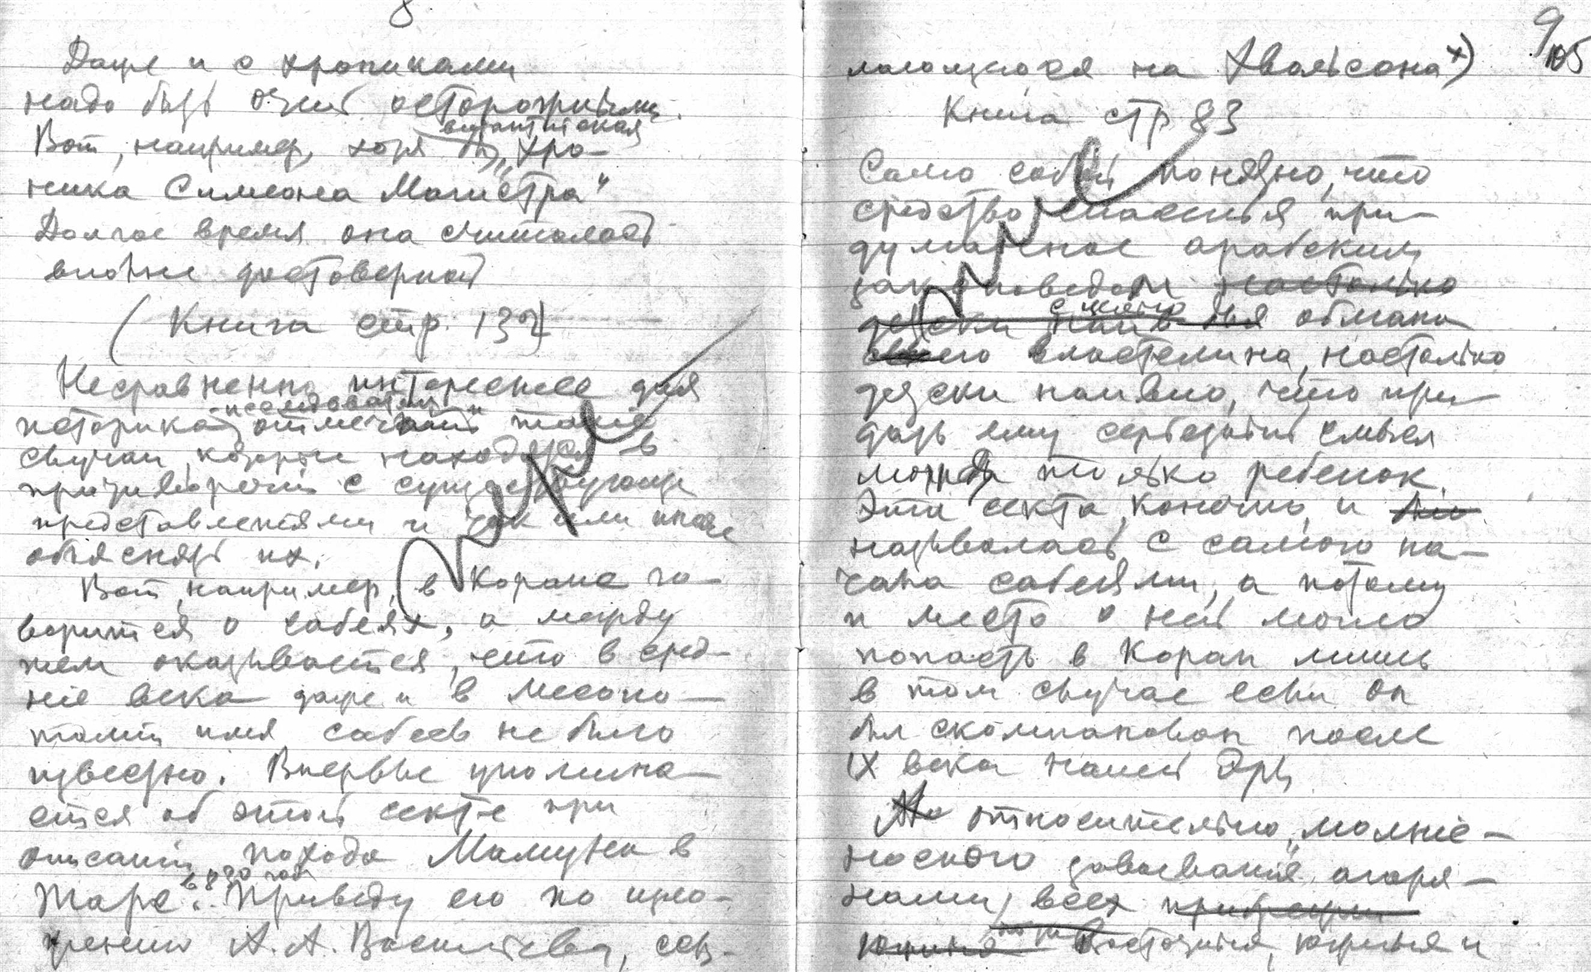 8
Даже и с хрониками
надо быть очень осторожным.
византийская
Вот, например, хотя бы „хро-
ника Симеона Магистра“
Долгое время она считалась
вполне достоверной
(Книга стр. 132)
Несравненно интереснее для
историка-исследователя отмечать такие
случаи, которые находятся в
противоречии с существующими
представлениями и так или иначе
объяснять их.
Вот, например, в Коране го-
ворится о сабеях, а между
тем оказывается, что в сред-
ние века даже и в Месопо-
тамии имя сабеев не было
известно. Впервые упомина-
ется об этой секте при
описании похода Мамуна в
в 830 году
Приведу его по изло-
жению А. А. Васильева, ссы-
9
105
лающегося на Хвольсона х)
Книга стр 83
Само собой понятно, что
средство спасенья при-
думанное арабским
законоведом настолько
детски наивно для обмана
своего властелина, настолько
детски наивно, что при-
дать ему серьезный смысл
может только ребенок.
Эта секта, конечно, и
называлась с самого на-
чала сабеями, а потому
и место о ней могло
попасть в Коран лишь
в том случае если он
был скомпанован после
IX века нашей Эры
Но относительно „молние-
носного завоевания агаря-
нами“ всех
восточных, южных и